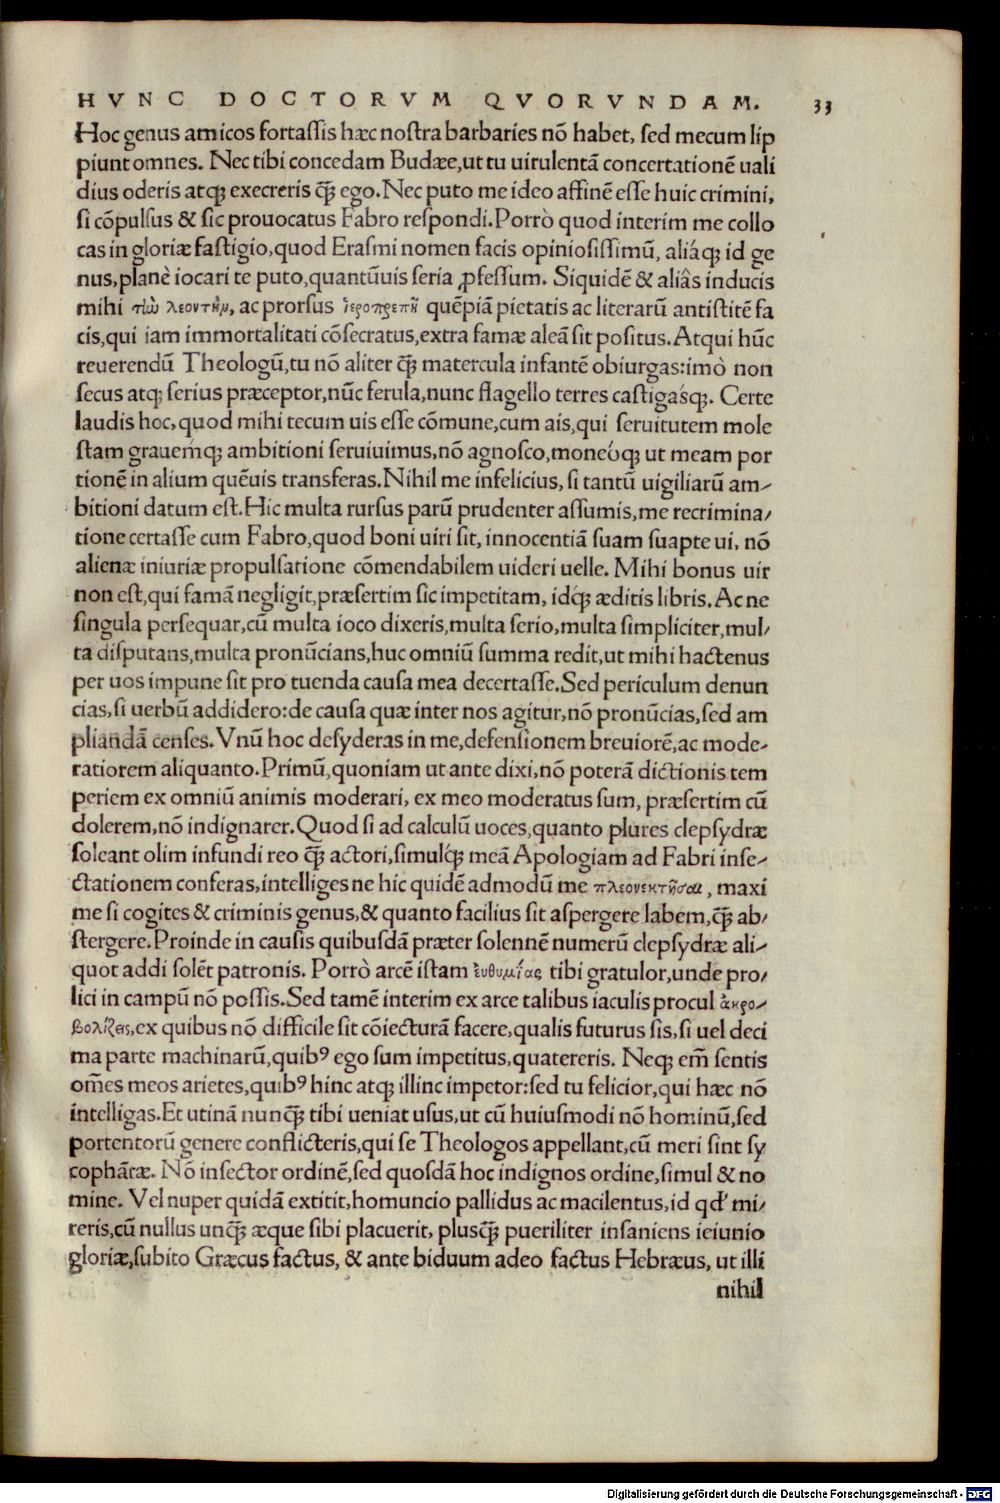 HVNC DOCTORVM QVORVNDAM. 33
Hoc genus amicos fortaſſis hæc noſtra barbaries nõ habet, ſed mecum lip
piunt omnes. Nec tibi concedam Budæe,ut tu uirulentã concertationẽ uali
dius oderis atqꝫ execreris q̃ꝫ ego.Nec puto me ideo affinẽ eſſe huic crimini,
ſi cõpulſus & ſic prouocatus Fabro reſpondi.Porrò quod interim me collo
cas in gloriæ faſtigio,quod Eraſmi nomen facis opinioſiſſimũ, aliáqꝫ id ge
nus,planè iocari te puto,quantũuis ſeria ꝓfeſſum. Siquidẽ & aliâs inducis
mihi τὴν λεοντῆν, ac prorſus ἱεροπρεπῆ quẽpiã pietatis ac literarũ antiſtitẽ fa
cis,qui iam immortalitati cõſecratus,extra famæ aleã ſit poſitus.Atqui hũc
reuerendũ Theologũ,tu nõ aliter q̃ꝫ matercula infantẽ obiurgas:imò non
ſecus atqꝫ ſerius præceptor,nũc ferula,nunc flagello terres caſtigaśqꝫ. Certe
laudis hoc,quod mihi tecum uis eſſe cõmune,cum ais,qui ſeruitutem mole
ſtam grauemq́ꝫ ambitioni ſeruiuimus,nõ agnoſco,moneóqꝫ ut meam por
tionẽ in alium quẽuis transferas.Nihil me infelicius, ſi tantũ uigiliarũ am⸗
bitioni datum eſt.Hic multa rurſus parũ prudenter aſſumis,me recrimina/
tione certaſſe cum Fabro,quod boni uiri ſit, innocentiã ſuam ſuapte ui, nõ
alienæ iniuriæ propulſatione cõmendabilem uideri uelle. Mihi bonus uir
non eſt,qui famã negligit,præſertim ſic impetitam, idq́ꝫ æditis libris.Ac ne
ſingula perſequar,cũ multa ioco dixeris,multa ſerio,multa ſimpliciter,mul/
ta diſputans,multa pronũcians,huc omniũ ſumma redit,ut mihi hactenus
per uos impune ſit pro tuenda cauſa mea decertaſſe.Sed periculum denun
cias,ſi uerbũ addidero:de cauſa quæ inter nos agitur,nõ pronũcias,ſed am
pliandã cenſes.Vnũ hoc deſyderas in me,defenſionem breuiorẽ,ac mode⸗
ratiorem aliquanto.Primũ,quoniam ut ante dixi,nõ poterã dictionis tem
periem ex omniũ animis moderari, ex meo moderatus ſum, præſertim cũ
dolerem,nõ indignarer.Quod ſi ad calculũ uoces,quanto plures clepſydræ
ſoleant olim infundi reo q̃ꝫ actori,ſimulq́ꝫ meã Apologiam ad Fabri inſe⸗
ctationem conferas,intelliges ne hic quidẽ admodũ me πλεονεκτῆσαι, maxi
me ſi cogites & criminis genus,& quanto facilius ſit aſpergere labem,q̃ꝫ ab/
ſtergere.Proinde in cauſis quibuſdã præter ſolennẽ numerũ clepſydræ ali⸗
quot addi ſolẽt patronis. Porrò arcẽ iſtam ἐυθυμίας tibi gratulor,unde pro/
lici in campũ nõ poſſis.Sed tamẽ interim ex arce talibus iaculis procul ἀκρο⸗
βολίζεις,ex quibus nõ difficile ſit cõiecturã facere,qualis futurus ſis,ſi uel deci
ma parte machinarũ,quibꝰ ego ſum impetitus,quatereris. Neqꝫ em̃ ſentis
om̃es meos arietes,quibꝰ hinc atqꝫ illinc impetor:ſed tu felicior,qui hæc nõ
intelligas.Et utinã nunq̃ꝫ tibi ueniat uſus,ut cũ huiuſmodi nõ hominũ,ſed
portentorũ genere conflicteris,qui ſe Theologos appellant,cũ meri ſint ſy
cophãtæ. Nõ inſector ordinẽ,ſed quoſdã hoc indignos ordine,ſimul & no
mine. Vel nuper quidã extitit,homuncio pallidus ac macilentus,id qđ mi/
reris,cũ nullus unq̃ꝫ æque ſibi placuerit, pluſq̃ꝫ pueriliter inſaniens ieiunio
gloriæ,ſubito Græcus factus, & ante biduum adeo factus Hebræus, ut illi
nihil
Digitalisierung gefördert durch die Deutsche Forschungsgemeinschaft - DFG